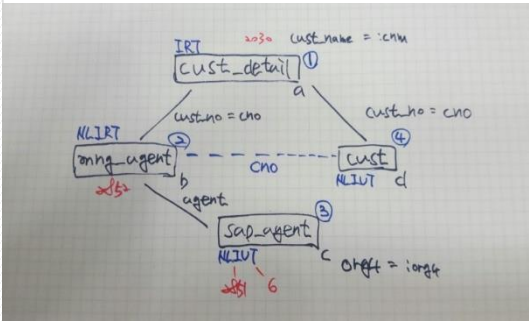 IRT 2030 cust_name = :cnm
cust_detail ①
a
cust_no = cno
cust_no = cno
NLIRT ② ④
mng_agent cno cust
b NLIUT d
agent
③
sap_agent
NLIUT c org4 = :org4
6